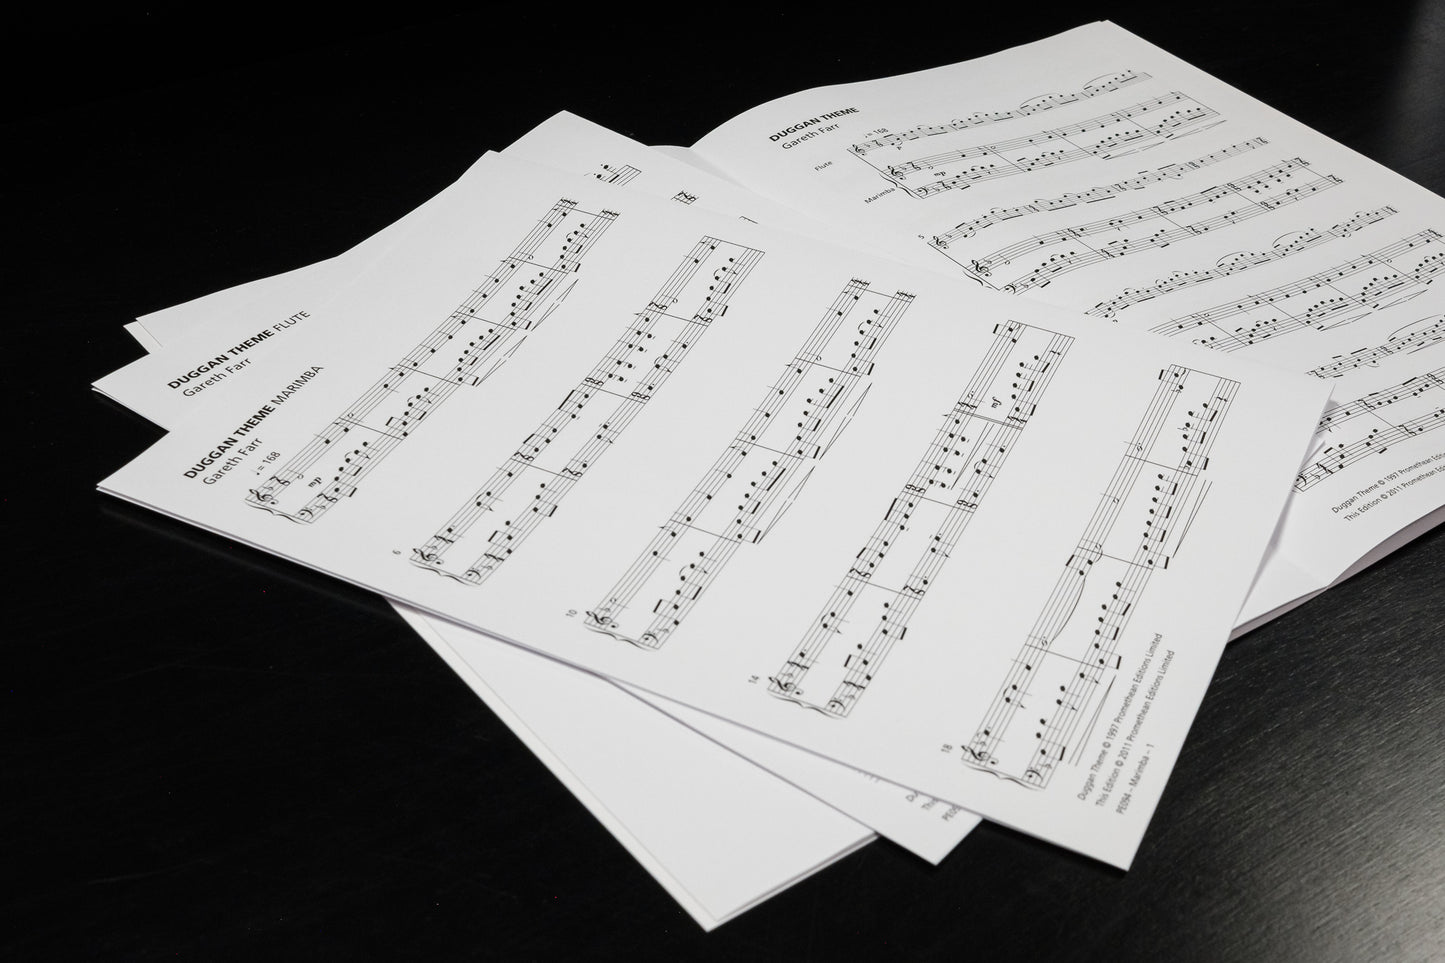 DUGGAN THEME
Gareth Farr
♩ = 168
Flute
p
mp
Marimba
5
Duggan Theme © 1997 Promethean
This Edition © 2011 Promethean
DUGGAN THEME FLUTE
Gareth Farr
DUGGAN THEME MARIMBA
Gareth Farr
♩ = 168
mp
6
10
14
mf
18
Duggan Theme © 1997 Promethean Editions Limited
This Edition © 2011 Promethean Editions Limited
PE094 – Marimba – 1